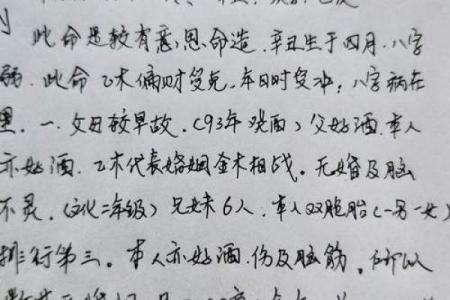 此命是较有意思命造.辛丑生于四月.八字
弱.此命乙木偏财受克.年日时受冲;八字病在
里.一.父母较早故.(93年
)父好酒.本人
亦好酒.乙木代表婚姻金木相战.无婚及脑
不灵.(文化二年级)兄妹6人.本人双胞胎(一男一女)
排行第三。本人亦好酒.伤及脑筋.所以